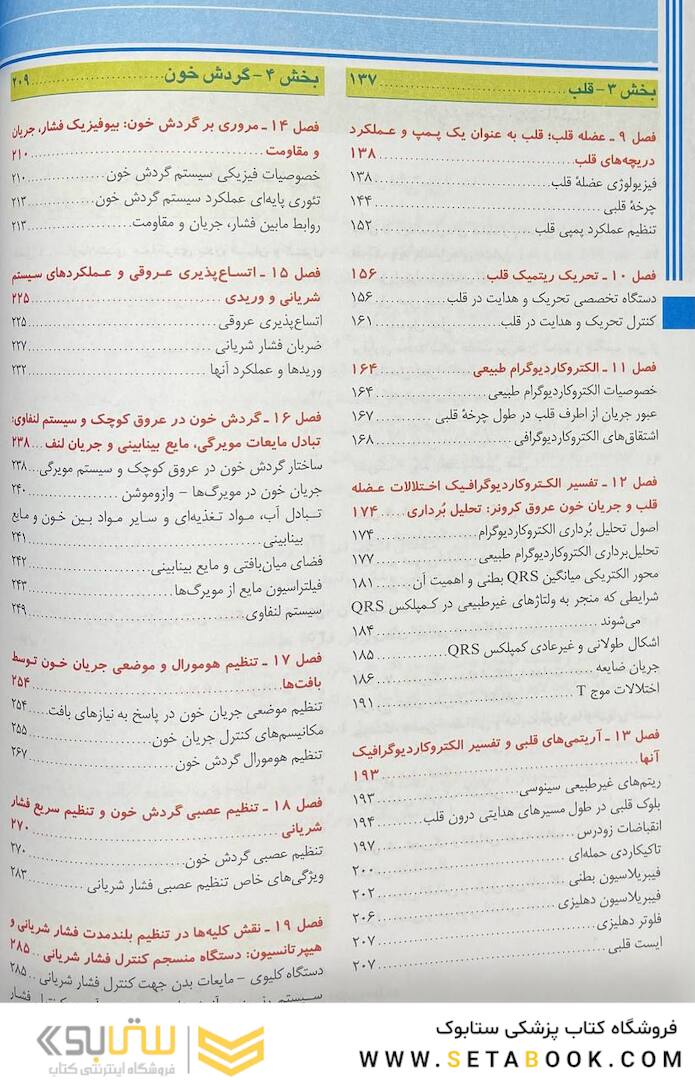 بخش ۳-قلب ۱۳۷
فصل ۹ ـ عضله قلب؛ قلب به عنوان یک پمپ و عملکرد
دریچه‌های قلب ۱۳۸
فیزیولوژی عضلهٔ قلب ۱۳۸
چرخهٔ قلبی ۱۴۴
تنظیم عملکرد پمپی قلب ۱۵۲
فصل ۱۰ ـ تحریک ریتمیک قلب ۱۵۶
دستگاه تخصصی تحریک و هدایت در قلب ۱۵۶
کنترل تحریک و هدایت در قلب ۱۶۱
فصل ۱۱ ـ الکتروکاردیوگرام طبیعی ۱۶۴
خصوصیات الکتروکاردیوگرام طبیعی ۱۶۴
عبور جریان از اطرف قلب در طول چرخهٔ قلبی ۱۶۷
اشتقاق‌های الکتروکاردیوگرافی ۱۶۸
فصل ۱۲ ـ تفسیر الکتروکاردیوگرافیک اختلالات عضله
قلب و جریان خون عروق کرونر: تحلیل بُرداری ۱۷۴
اصول تحلیل بُرداری الکتروکاردیوگرام ۱۷۴
تحلیل‌برداری الکتروکاردیوگرام طبیعی ۱۷۷
محور الکتریکی میانگین QRS بطنی و اهمیت آن ۱۸۱
شرایطی که منجر به ولتاژهای غیرطبیعی در کمپلکس QRS
می‌شوند ۱۸۴
اشکال طولانی و غیرعادی کمپلکس QRS ۱۸۵
جریان ضایعه ۱۸۶
اختلالات موج T ۱۹۱
فصل ۱۳ ـ آریتمی‌های قلبی و تفسیر الکتروکاردیوگرافیک
آنها ۱۹۳
ریتم‌های غیرطبیعی سینوسی ۱۹۳
بلوک قلبی در طول مسیرهای هدایتی درون قلب ۱۹۴
انقباضات زودرس ۱۹۷
تاکیکاردی حمله‌ای ۲۰۰
فیبریلاسیون بطنی ۲۰۲
فیبریلاسیون دهلیزی ۲۰۶
فلوتر دهلیزی ۲۰۷
ایست قلبی ۲۰۷
بخش ۴-گردش خون ۲۰۹
فصل ۱۴ ـ مروری بر گردش خون: بیوفیزیک فشار، جریان
و مقاومت ۲۱۰
خصوصیات فیزیکی سیستم گردش خون ۲۱۰
تئوری پایه‌ای عملکرد سیستم گردش خون ۲۱۳
روابط مابین فشار، جریان و مقاومت ۲۱۳
فصل ۱۵ ـ اتساع‌پذیری عروقی و عملکردهای سیستم
شریانی و وریدی ۲۲۵
اتساع‌پذیری عروقی ۲۲۵
ضربان فشار شریانی ۲۲۷
وریدها و عملکرد آنها ۲۳۲
فصل ۱۶ ـ گردش خون در عروق کوچک و سیستم لنفاوی:
تبادل مایعات مویرگی، مایع بینابینی و جریان لنف ۲۳۸
ساختار گردش خون در عروق کوچک و سیستم مویرگی ۲۳۸
جریان خون در مویرگ‌ها – وازوموشن ۲۴۰
تبادل آب، مواد تغذیه‌ای و سایر مواد بین خون و مایع
بینابینی ۲۴۱
فضای میان‌بافتی و مایع بینابینی ۲۴۲
فیلتراسیون مایع از مویرگ‌ها ۲۴۳
سیستم لنفاوی ۲۴۹
فصل ۱۷ ـ تنظیم هومورال و موضعی جریان خون توسط
بافت‌ها ۲۵۴
تنظیم موضعی جریان خون در پاسخ به نیازهای بافت ۲۵۴
مکانیسم‌های کنترل جریان خون ۲۵۵
تنظیم هومورال گردش خون ۲۶۷
فصل ۱۸ ـ تنظیم عصبی گردش خون و تنظیم سریع فشار
شریانی ۲۷۰
تنظیم عصبی گردش خون ۲۷۰
ویژگی‌های خاص تنظیم عصبی فشار شریانی ۲۸۳
فصل ۱۹ ـ نقش کلیه‌ها در تنظیم بلندمدت فشار شریانی و
هیپرتانسیون: دستگاه منسجم کنترل فشار شریانی ۲۸۵
دستگاه کلیوی – مایعات بدن جهت کنترل فشار شریانی ۲۸۵
فروشگاه کتاب پزشکی ستابوک
WWW.SETABOOK.COM
ستابوک
فروشگاه اینترنتی کتاب